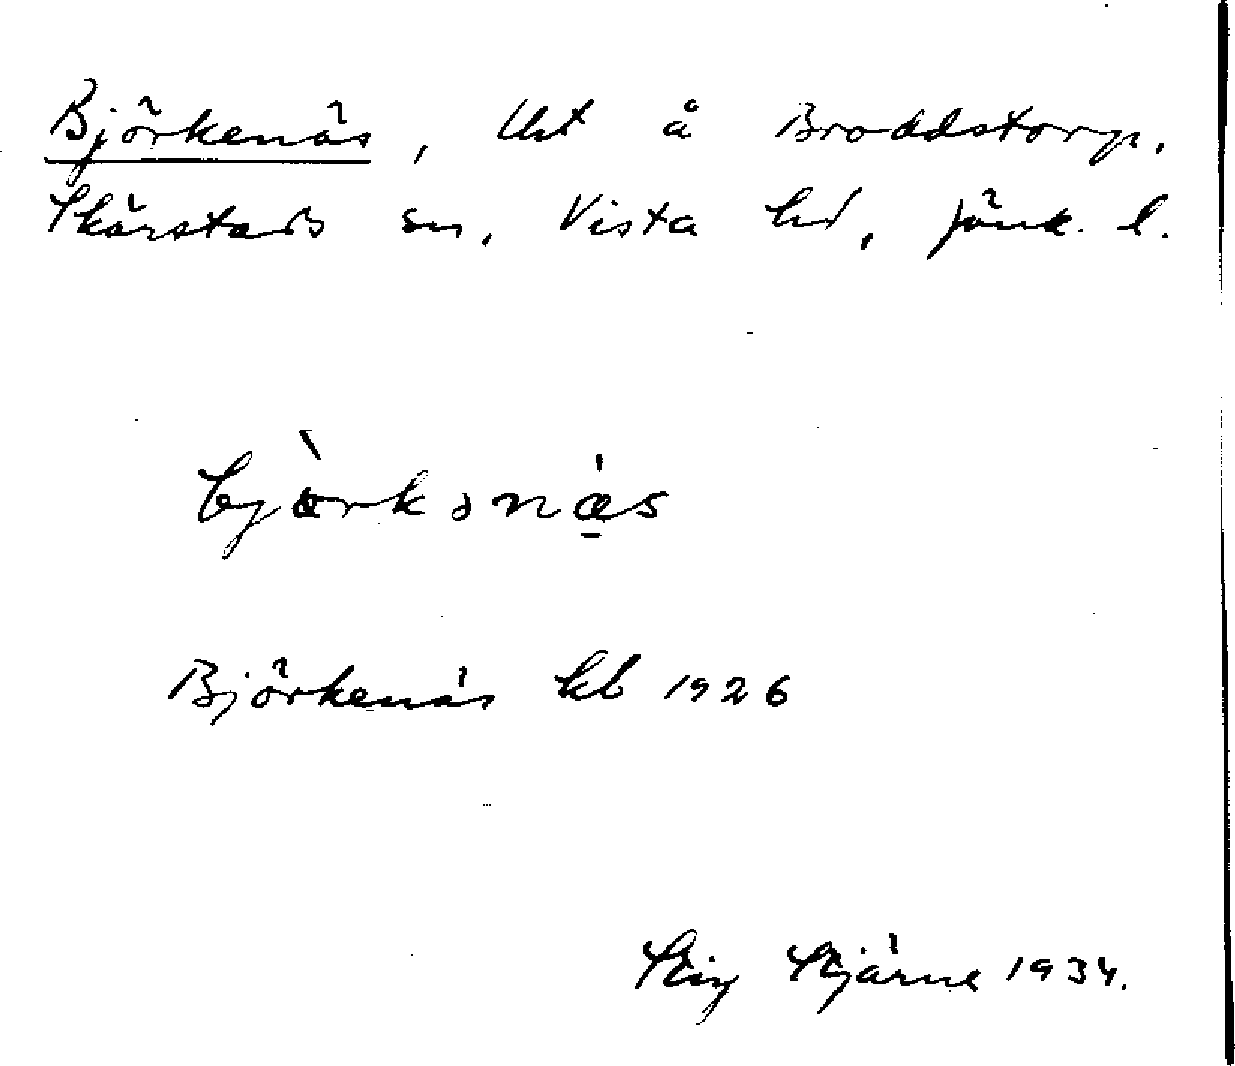 Björkenäs, lht å Broddstorp,
Skärstads sn, Vista hd, Jönk. l.
bjòrkənǽ̠s
Björkenäs kb 1926
Stig Stjärne 1934.